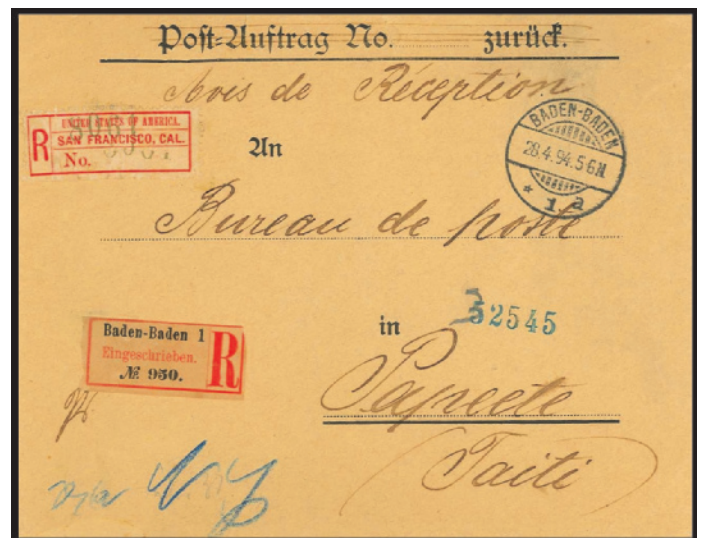 Post-Auftrag No. zurück.
Avis de Réception
UNITED STATES OF AMERICA.
R SAN FRANCISCO, CAL.
No.
An
BADEN-BADEN
28.4.94.5-6N
* 1 a
Bureau de poste
in 32545
Baden-Baden 1
Eingeschrieben. R
№ 950.
Papeete
(Taiti)
via N Y